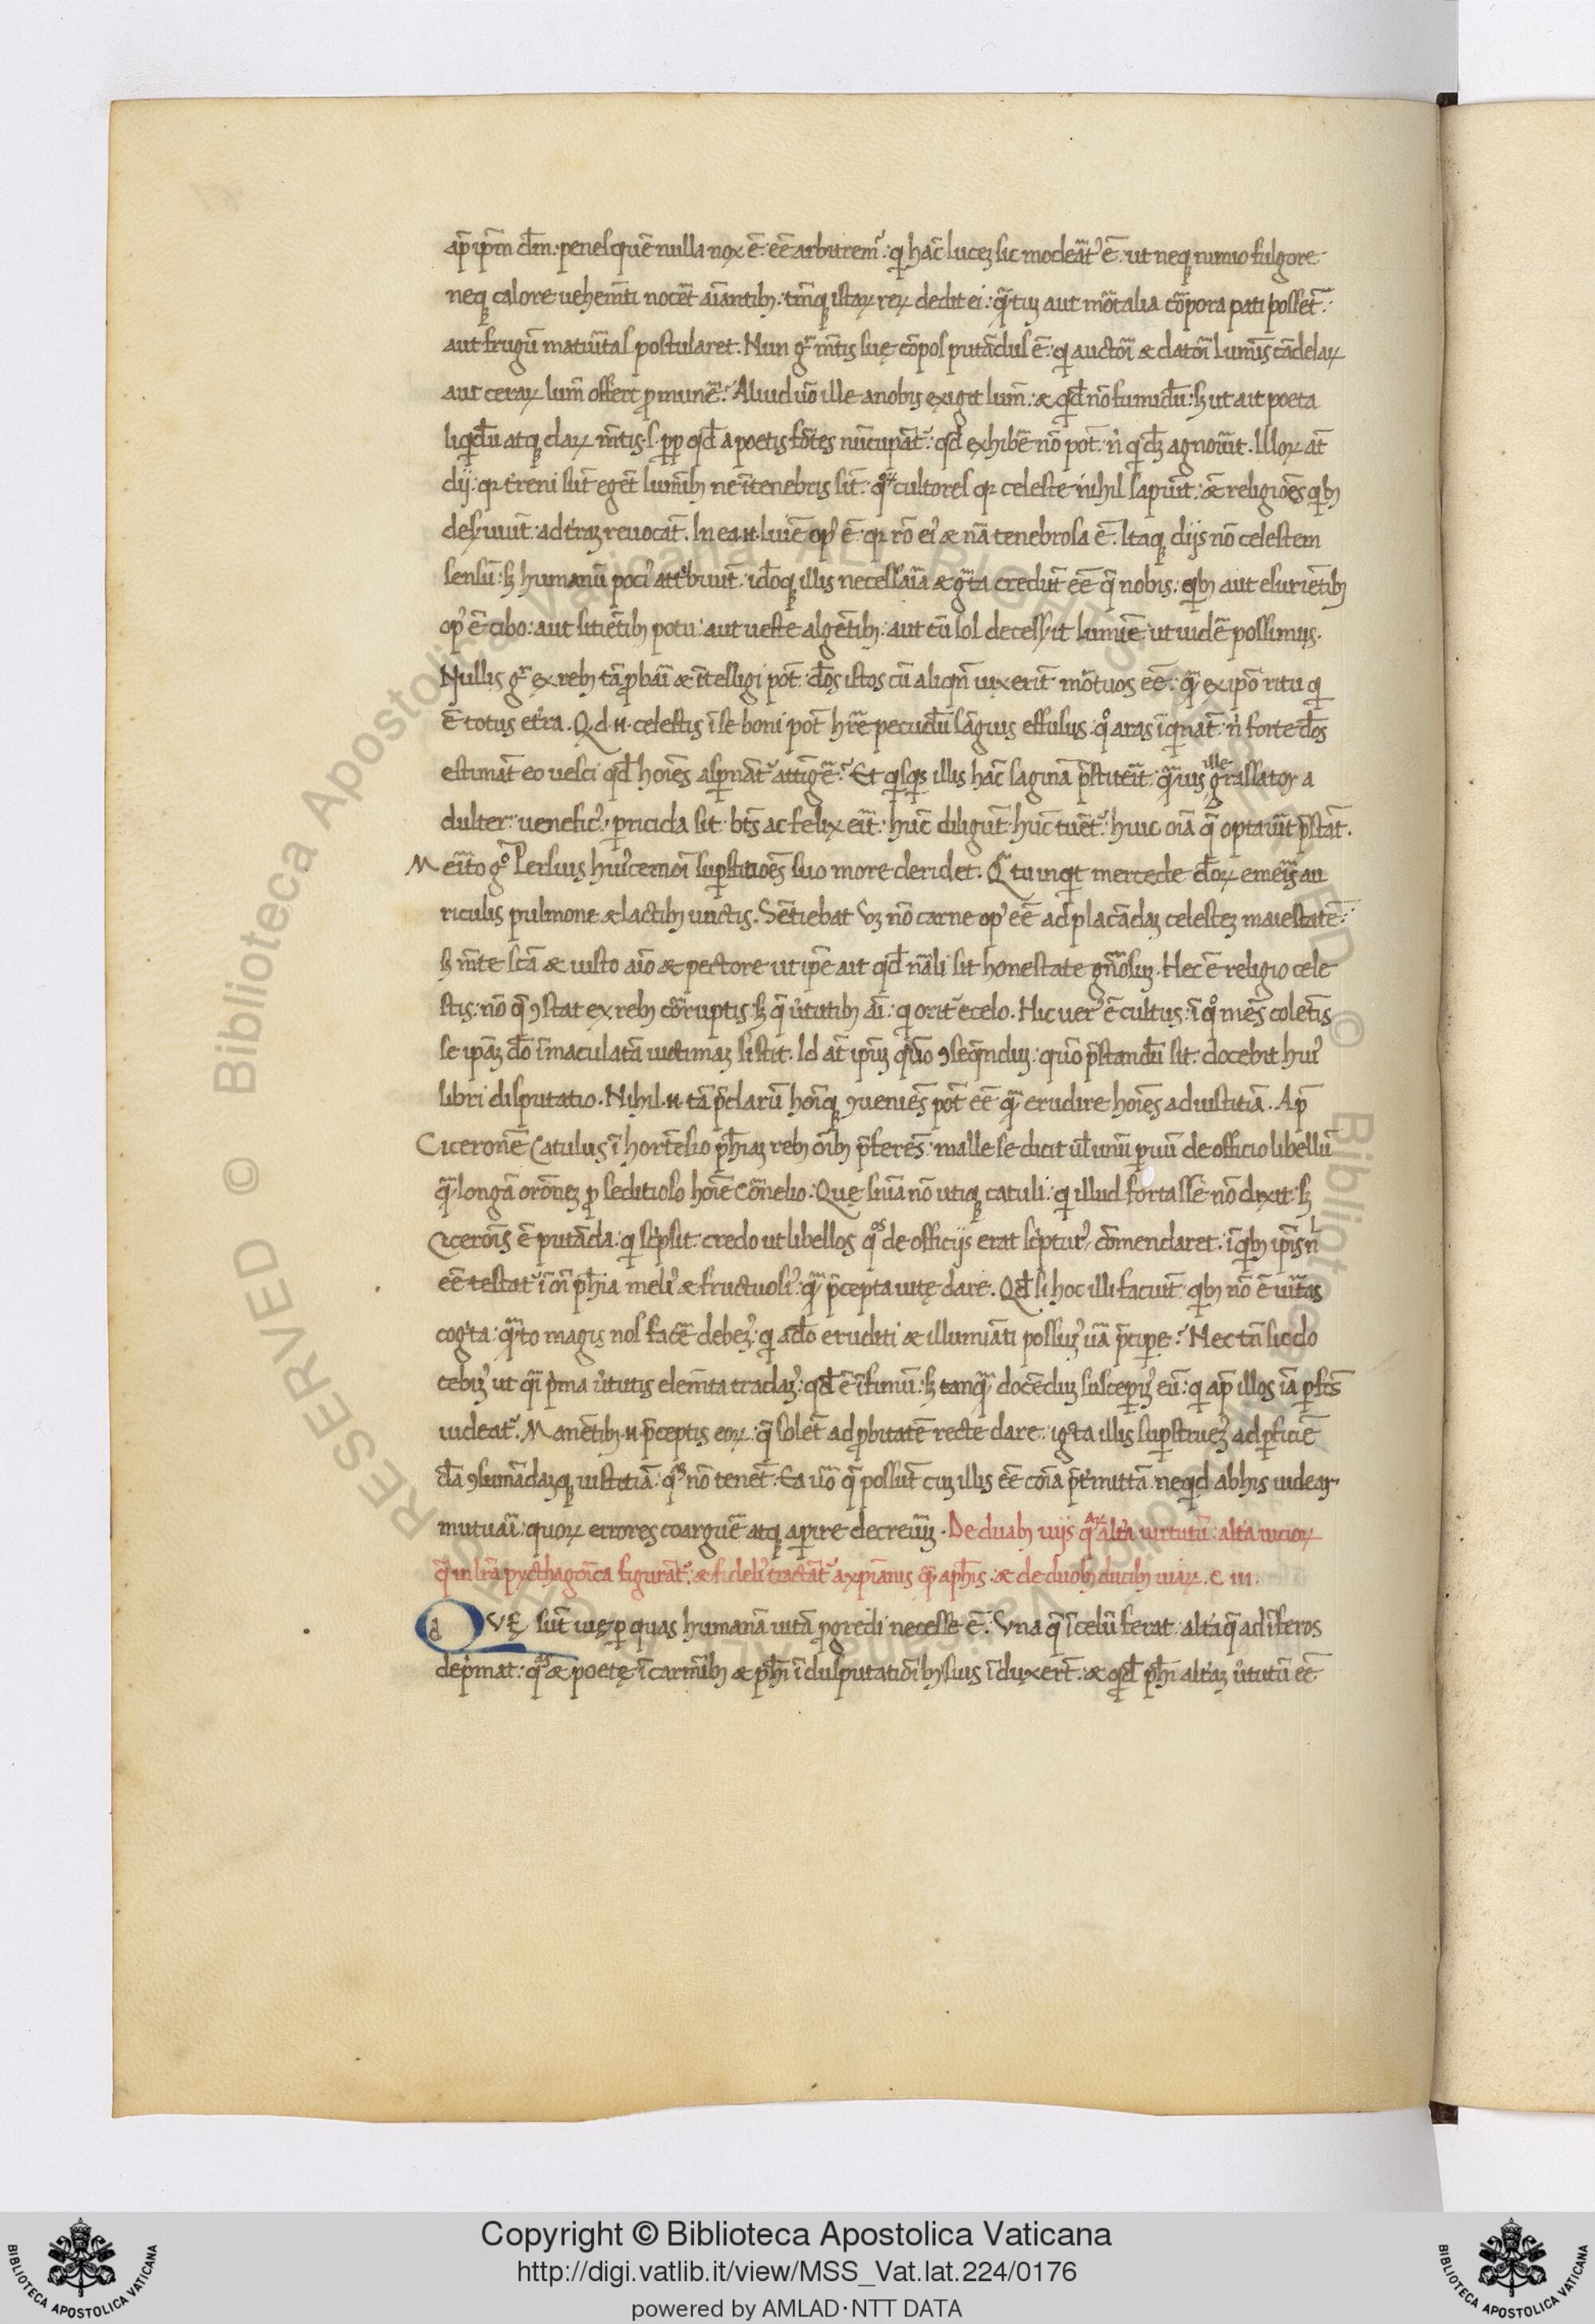 ap̄ ip̄m dm̄: penes quē nulla nox ē: eē arbitrem᷒: qi hāc lucez sic modeāt᷒ ē: ut neqꝫ nimio fulgore
neqꝫ calore uehemīti nocēt aīantibꝫ: tm̄qꝫ istaꝝ reꝝ dedit ei: q̄tuꝫ aut mōtalia cōpora pati possēt:
aut frugū matuītas postularet. Nun gͦ mītis suę cōpos putādus ē: qi auctōi ⁊ datōi luminīs cādelaꝝ
aut ceraꝝ lum̄ offert ꝓ munē? Aliud uō ille a nobis exigit lum̄: ⁊ qd̄ nō fumidū: sꝫ ut ait poeta
liqdū atqꝫ claꝝ mītis. s. ꝓp qd̄ a poetis fōtes nūcupāt᷒: qd̄ exhibē nō pōt: n̄ qi dꝫ agnouīt. Illoꝝ at̄
dij: qꝛ treni sūt egēt lumībꝫ ne ī tenebris sīt: qͦꝝ cultores qꝛ celeste nihil sapiūt: ⁊ religiōes qibꝫ
deſuiūt: ad traꝫ reuocāt. In ea .n. luīe op᷒ ē: qꝛ rō ei᷒ ⁊ nā tenebrosa ē. Itaqꝫ dijs nō celestem
sensū: sꝫ humanū poci᷒ att͛buūt: idōqꝫ illis necessaīa ⁊ gͣta credūt eē q̄ nobis: qibꝫ aut esuriētibꝫ
op᷒ ē cibo: aut sitiētibꝫ potu: aut ueste algētibꝫ: aut cū sol decesſit lumīe: ut uidē possimus.
Nullis gͦ ex rebꝫ tā ꝓbāi ⁊ ītelligi pōt: dōs istos cū aliqn̄ uixerīt mōtuos eē: q̄ ex ipō ritu qi
ē totus eťra. Q. d .n. celestis ī se boni pōt hr̄e pecudū sāguis effusus: qͦ aras īqināt: n̄ forte dōs
estimāt eo uesci qd̄ hoiēs asp̱nāt᷒ attīgē? Et qisqis illis hāc saginā p̄stiteīt: q̄uis ille grassator a
dulter: uenefic᷒: p̱ricida sit: bt̄s ac felix eīt: hūc diligūt: hūc tuēt᷒: huic oīa q̄ optauīt p̄stāt.
Meīto gͦ Persius hui᷒cemōi sup̱stitiōes suo more deridet. Qͣ tu inqit mercede dōꝝ emeīs au
riculis pulmone ⁊ lactibꝫ unctis. Sētiebat uꝫ nō carne op᷒ eē ad placādaꝫ celesteꝫ maiestatē:
sꝫ mīte scā ⁊ iusto aīo ⁊ pectore ut ipē ait qd̄ nāli sit honestate gn̄osuꝫ. Hec ē religio cele
stis: nō q̄ ꝯstat ex rebꝫ cōruptis: sꝫ q̄ u͛tutibꝫ āi: qi orit᷒ e celo. Hic uer᷒ ē cultus: ī qͦ mēs colētis
se ipāꝫ dō īmaculatā uictimaꝫ sistit. Id at̄ ipūꝫ qūo ꝯseqndūꝫ: quō p̄standū sit: docebit hui᷒
libri disputatio. Nihil .n. tā p̄clarū hoīqꝫ ꝯueniēs pōt eē q̄ erudire hoiēs ad iustitiā. Ap̄
Ciceronē Catulus ī hortēsio ph̄iaꝫ rebꝫ oībꝫ p̄ferēs: malle se dicit ul̄ unū p̱uū de officio libellū
q̄ longā orōneꝫ ꝓ seditioso hoīe Cōnelio: Quę snīa nō utiqꝫ catuli: qi illud fortasse nō dixit: sꝫ
Cicerōis ē putāda: qi sc͛psit credo ut libellos qͦs de officijs erat sc͛ptur᷒ cōmendaret: ī qibꝫ ipīs n̄
eē testat᷒ ī oī ph̄ia meli᷒ ⁊ fructuosi᷒: q̄ p̄cepta uitę dare. Qd̄ si hoc illi faciūt: qibꝫ nō ē uītas
cogͥta: q̄to magis nos facē debeꝫ᷒: qi a dō eruditi ⁊ illumīati possuꝫ᷒ uā p̄cipe? Nec tn̄ sic do
cebiꝫ᷒ ut q̄i p͛ma u͛tutis elemīta tradaꝫ᷒: qd̄ ē īfinitū: sꝫ tanq̄ docēduꝫ suscep̱iꝫ᷒ eū: qi ap̄ illos iā p̱fcs̄
uideat᷒. Manētibꝫ .n. p̄ceptis eoꝝ: q̄ solēt ad ꝓbitatē recte dare: igͦta illis sup̱strueꝫ᷒ ad p̱ficiē
dā ꝯsumādaꝫqꝫ iustitiā: qͣ nō tenēt. Ea uō q̄ possūt cuꝫ illis eē cōia p̄t͛mittā: ne qid ab his uidear
mutuāi: quoꝝ errores coarguē atqꝫ ap̱ire decreuiꝫ. De duabꝫ uijs qͣꝝ alťa uirtutū: alťa uicioꝝ
q̄ in lr̄a pycthagōica figurāt᷒: ⁊ fideli᷒ tractāt᷒ a xp̄ianis q̄ a ph̄is: ⁊ de duobꝫ ducibꝫ uiaꝝ. c. iii.
QVĘ sūt uię p̱ quas humanā uitā ꝓgredi necesse ē. Vna q̄ ī celū ferat: alťa q̄ ad īferos
dep͛mat: qͣs ⁊ poetę ī carmībꝫ ⁊ ph̄i ī disputatiōibꝫ suis īduxerūt. ⁊ qd̄ ph̄i alťaꝫ u͛tutū eē
RESERVED © Biblioteca Apostolica Vaticana
Copyright © Biblioteca Apostolica Vaticana
http://digi.vatlib.it/view/MSS_Vat.lat.224/0176
powered by AMLAD·NTT DATA
BIBLIOTECA APOSTOLICA VATICANA
BIBLIOTECA APOSTOLICA VATICANA